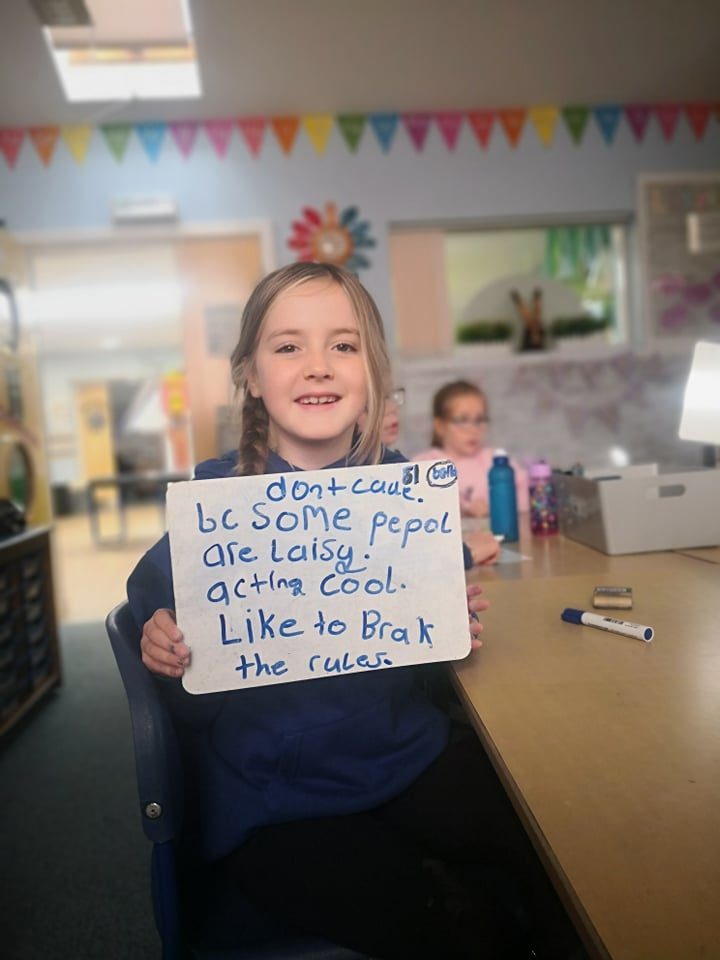 dont caue.
bc SOME pepol
are Laisy.
acting cool.
Like to Brak
the rules.